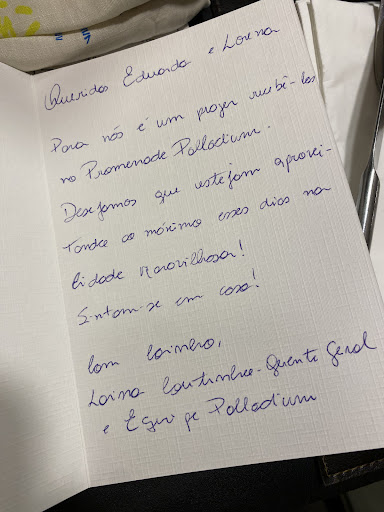 Queridos Eduardo e Lorena
Para nós é um prazer recebê-los
no Promenade Palladium.
Desejamos que estejam aprovei-
tando ao máximo esses dias na
cidade maravilhosa!
Sintam-se em casa!
Com carinho,
Loina Coutinho - Gerente Geral
e Equipe Palladium